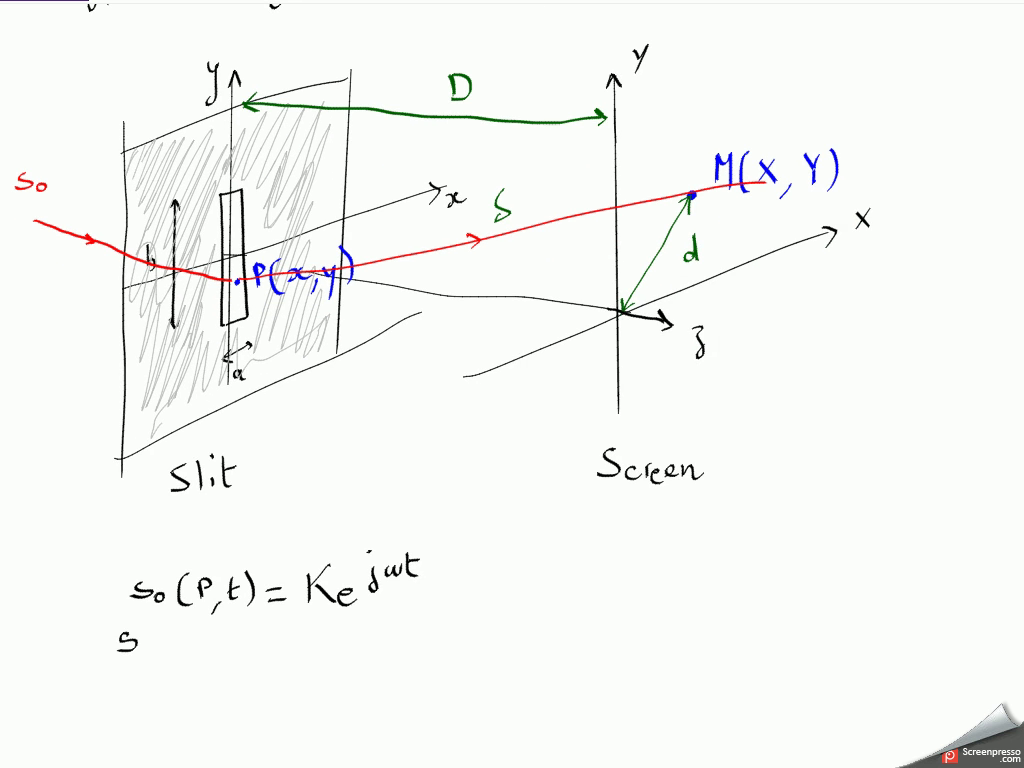 y
D
Y
M(X, Y)
s₀
x
S
X
b
P(x, y)
d
z
a
Slit
Screen
s₀(P, t) = K e^{jωt}
S
Screenpresso
.com